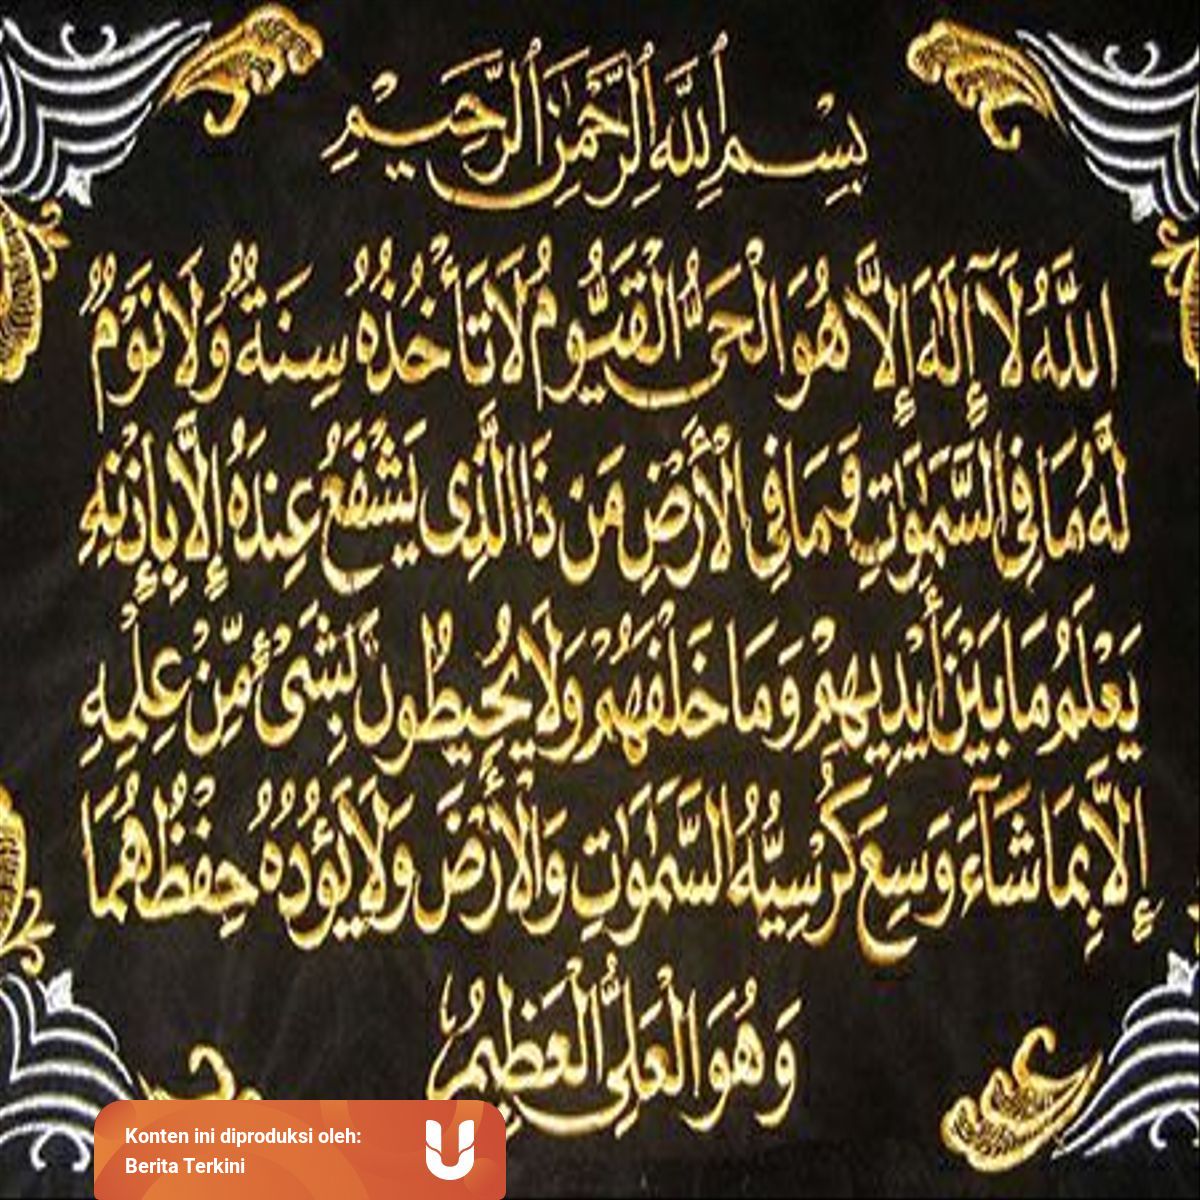 بِسْمِ اللَّهِ الرَّحْمَٰنِ الرَّحِيْمِ
اللَّهُ لَآ إِلَٰهَ إِلَّا هُوَ الْحَيُّ الْقَيُّومُ لَا تَأْخُذُهُ سِنَةٌ وَلَا نَوْمٌ
لَّهُ مَا فِي السَّمَوَٰتِ وَمَا فِي الْأَرْضِ مَن ذَا الَّذِى يَشْفَعُ عِندَهُ إِلَّا بِإِذْنِهِ
يَعْلَمُ مَا بَيْنَ أَيْدِيهِمْ وَمَا خَلْفَهُمْ وَلَا يُحِيطُونَ بِشَىْءٍ مِّنْ عِلْمِهِ
إِلَّا بِمَا شَآءَ وَسِعَ كُرْسِيُّهُ السَّمَوَٰتِ وَالْأَرْضَ وَلَا يَؤُدُهُ حِفْظُهُمَا
وَهُوَ الْعَلِىُّ الْعَظِيمُ
Konten ini diproduksi oleh:
Berita Terkini